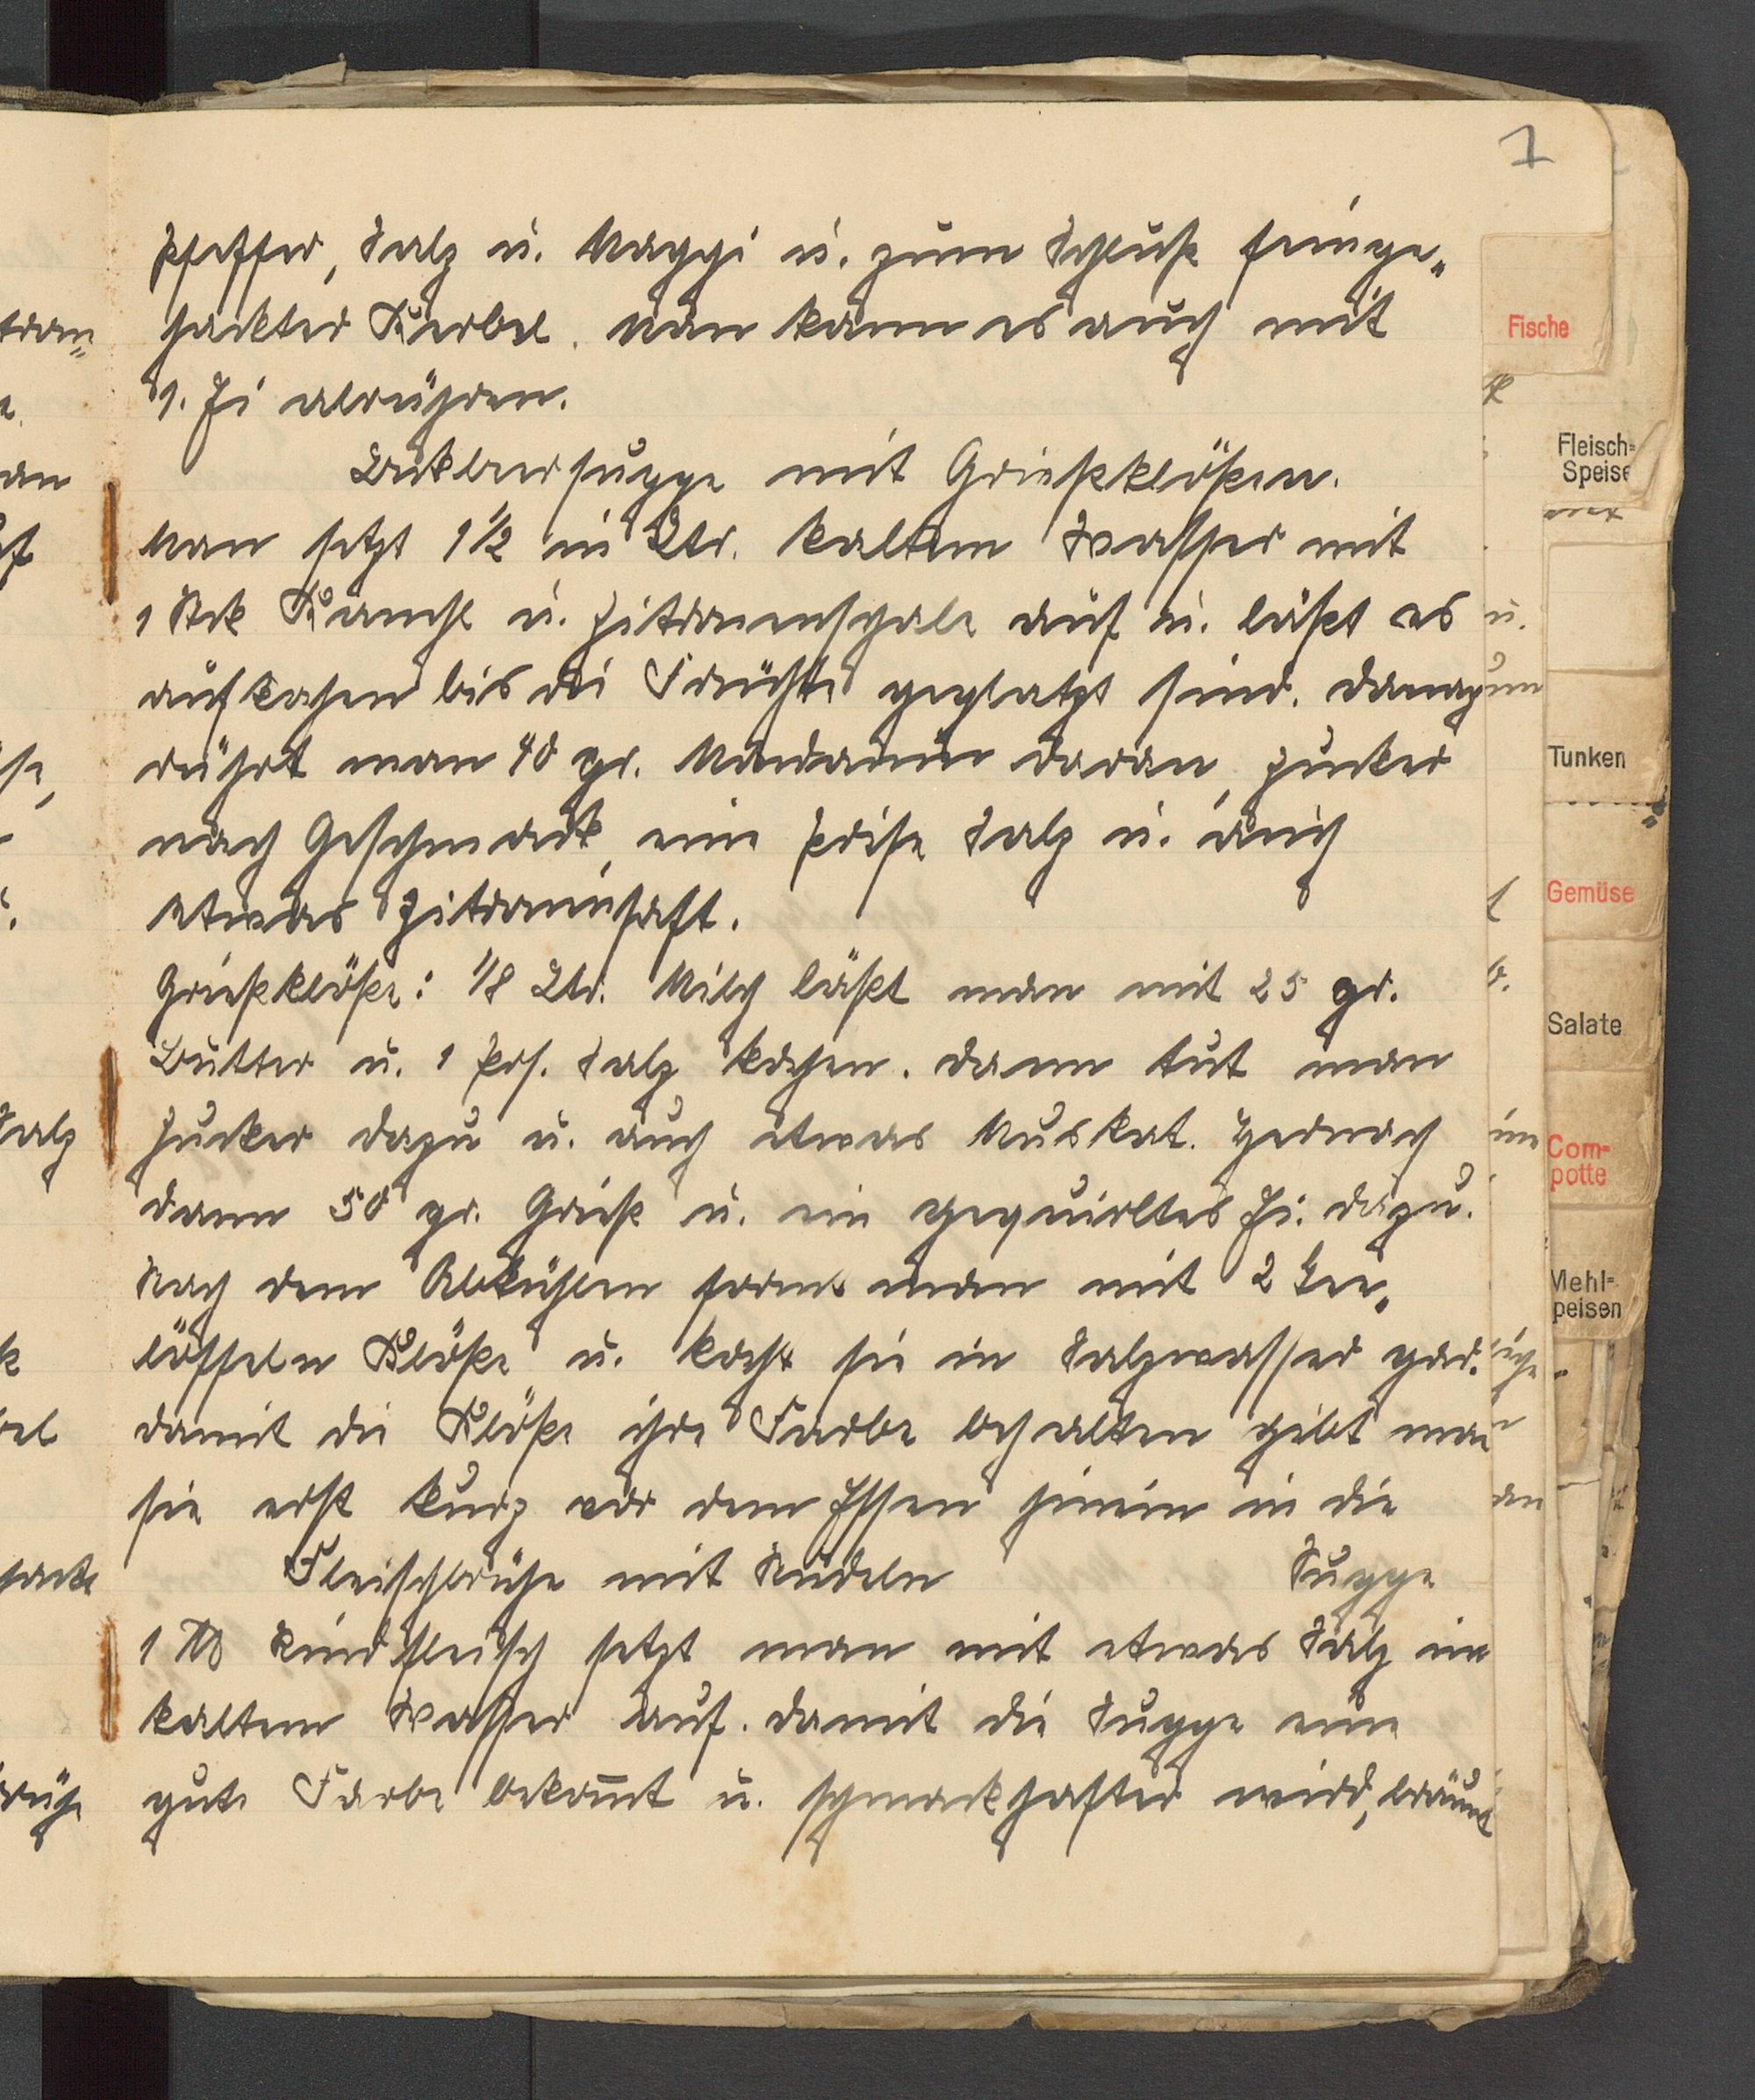 7
Pfeffer, Salz u. Maggi u. zum Schluß feinge-
hackter Kerbel. Man kann es auch mit
1. Ei abrühren.
suppe mit Grießklößen.
Man setzt 1 1/2 in Ltr. kaltem Wasser mit
1 Stck u. Zitronenschale auf u. läßt es
aufkochen bis die Früchte geplatzt sind. Danach
rührt man 40 gr. Mondamin daran, Zucker
nach Geschmack, eine Prise Salz u. auch
etwas Zitronensaft.
Grießklöße: 1/8 Ltr. Milch läßt man mit 25 gr.
Butter u. 1 Prs. Salz kochen. Dann tut man
Zucker dazu u. auch etwas Muskat.
dann 50 gr. Grieß u. ein gequirltes Ei. dazu.
Nach dem Abkühlen formt man mit 2 Tee-
löffeln Klöße u. kocht sie in Salzwasser gar.
damit die Klöße ihre Farbe behalten gibt man
sie erst kurz vor dem Essen hinein in die
Suppe
Fleischbrühe mit Nudeln
1 Pfd Rindfleisch setzt man mit etwas Salz in
kaltem Wasser auf. Damit die Suppe eine
gute Farbe bekom̅t u. schmackhafter wird, bräunt
Fische
Fleisch-
Speise
Tunken
Gemüse
Salate
Com-
potte
Mehl-
peisen